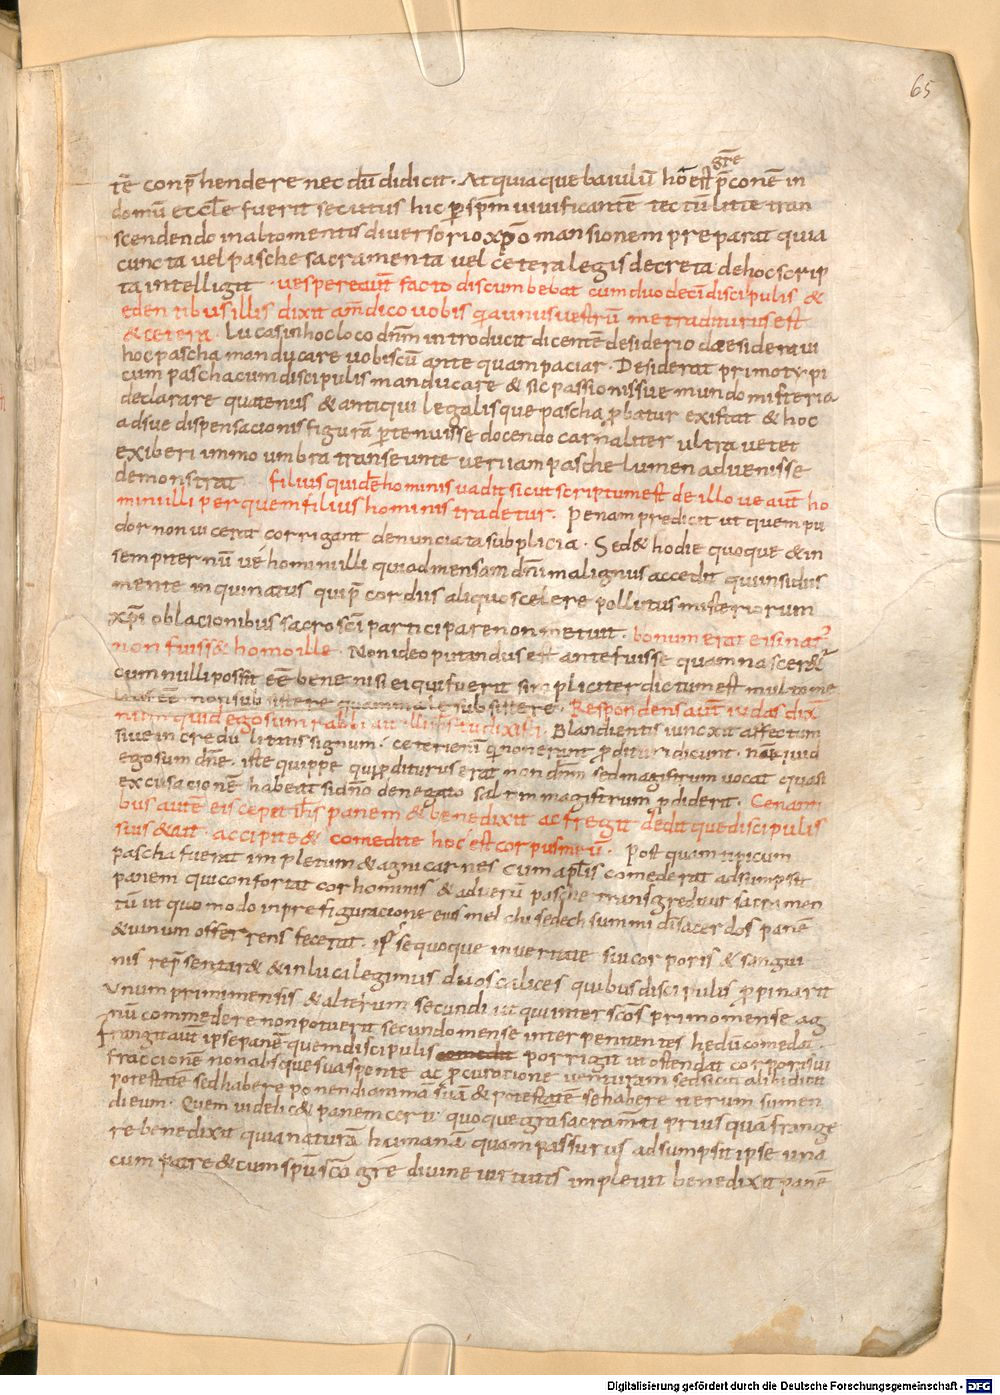 65
grȩ
tē conp̄hendere nec dū didicit. At quia que baiulū hoc est p̄conē in
domū eccłe fuerit secutus hic per spm̄ vivificantē tectū littȩ tran
scendendo in alto mentis diversorio xpō mansionem preparat quia
cuncta vel pasche sacramenta vel cetera legis decreta de hoc scrip
ta intelligit. vespere autē facto discumbebat cum duodeci discipulis &
edentibus illis dixit amen dico vobis quia unus vestrū me traditurus est
& cetera. Lucas in hoc loco dnm̄ introducit dicentē desiderio desideravi
hoc pascha manducare vobiscū ante quam paciar. Desiderat primo typi
cum pascha cum discipulis manducare & sic passionis suȩ mundo misteria
declarare quatenus & antiqui legalisque paschȩ probatur existat & hoc
ad suȩ dispensacionis figurā pertenuisse docendo carnaliter ultra vetet
exiberi immo umbra transeunte veri iam pasche lumen advenisse
demonstrat filius quidē hominis vadit sicut scriptum est de illo ve autē ho
mini illi per quem filius hominis tradetur. Penam predicit ut quem pu
dor non vicerat corrigant denunciata subplicia. Sed & hodie quoque & in
sempiternū vȩ homini illi qui ad mensam dn̄i malignus accedit qui insidiis
mente inquinatus qui p̄cordiis aliquo scelere pollutus misteriorum
xp̄i oblacionibus sacroscī participare non metuit. bonum erat ei si nat'
non fuiss& homo ille. Non ideo putandus est ante fuisse quam nascer&'
cum nulli possit eē bene nisi ei qui fuerit simpliciter dictum est multo me
lius eē non subsistere quam male subsistere. Respondens autē iudas dix̄
numquid ego sum rabbi ait illi tu dixisti. Blandientis iunxit affectum
sive incredulitatis signum. ceteri enī qui non erant prodituri dicunt. nūquid
ego sum dn̄e. iste quippe qui proditurus erat non dnm̄ sed magistrum vocat quasi
excusacionē habeat si dn̄o denegato saltim magistrum prodiderit. Cenanti
bus autē eis cepit ihs panem & benedixit ac fregit deditque discipulis
suis & ait. accipite & comedite hoc est corpus meū. Post quam tipicum
pascha fuerat impletum & agni carnes cum apłis comederat adsumpsit
panem qui confortat cor hominis & ad verū paschȩ transgreditur sacramen
tū ut quomodo in prefiguracione eius melchisedech summi dī sacerdos panē
& vinum offerrens fecerat. ipse quoque in veritate sui corporis & sangui
nis rep̄sentar& & in luca legimus duos calices quibus discipulis propinarit
unum primi mensis & alterum secundi ut qui inter scos primo mense ag
nū commedere non potuerit secundo mense inter penitentes hedū comedat.
frangit autē ipse panē quem discipulis comedit porrigit ut ostendat corporis sui
fraccionē non absque sua sponte ac procuratione venturam sed sicut alibi dicit
potestatē se habere ponendi animā suā & potestatē se habere iterum sumen
di eum. Quem videlic& panem certi quoque gra sacramti prius quā frange
re benedixit quia naturā humanā quam passurus adsumpsit ipse una
cum patre & cum spū sco grē divine virtutis implevit benedixit panē
Digitalisierung gefördert durch die Deutsche Forschungsgemeinschaft - DFG